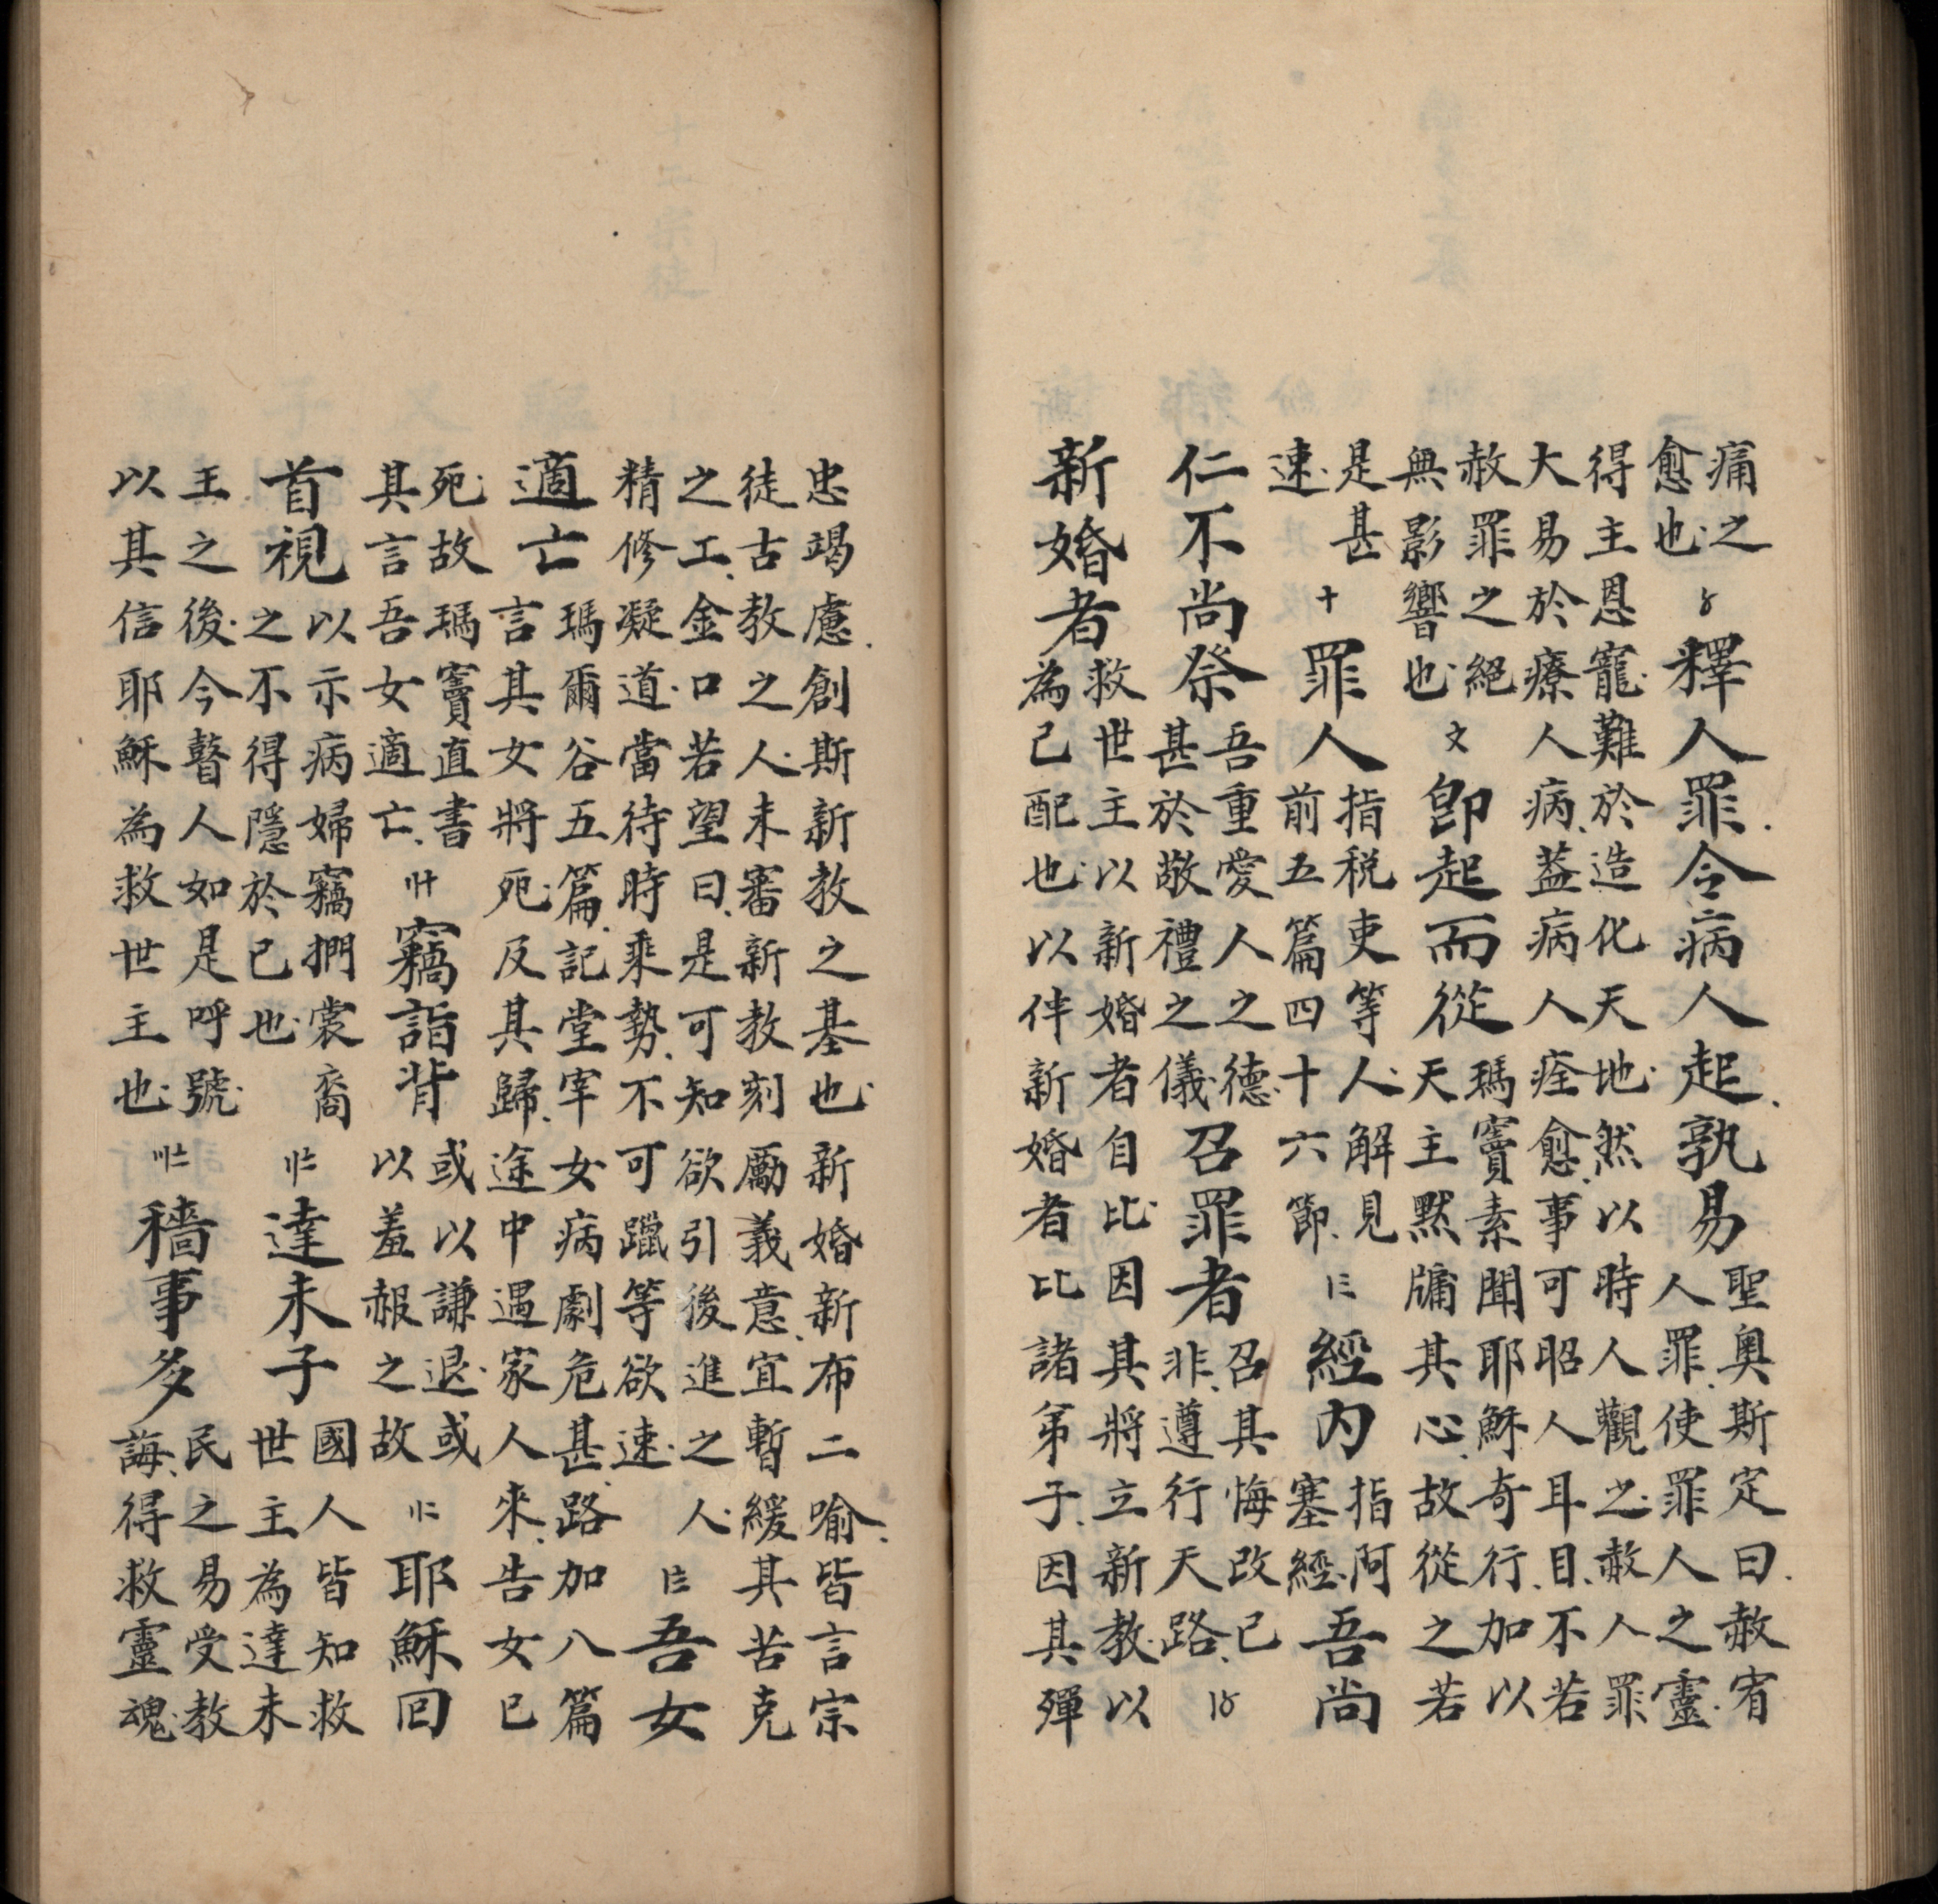 痛之
愈也 〥 釋人罪令病人起孰易 聖奧斯定曰赦宥
人罪使罪人之靈
得主恩寵難於造化天地然以時人觀之赦人罪
大易於療人病蓋病人痊愈事可昭人耳目不若
赦罪之絕
無影響也 〩 卽起而從 瑪竇素聞耶穌奇行加以
天主默牖其心故從之若
是甚
速 十 罪人 指税吏等人解見
前五篇四十六節 〡三 經内 指阿
塞經 吾尚
仁不尚祭 吾重愛人之德
甚於敬禮之儀 召罪者 召其悔改已
非遵行天路 〡〥
新婚者 救世主以新婚者自比因其將立新教以
為己配也以伴新婚者比諸弟子因其殫
忠竭慮創斯新教之基也新婚新布二喻皆言宗
徒古教之人未審新教刻勵義意宜暫緩其苦克
之工金口若望曰是可知欲引後進之人
精修凝道當待時乘勢不可躐等欲速 〡〨 吾女
適亡 瑪爾谷五篇記堂宰女病劇危甚路加八篇
言其女將死及其歸途中遇家人來告女已
死故瑪竇直書
其言吾女適亡 〢十 竊詣背 或以謙退或
以羞赧之故 〢二 耶穌回
首視 以示病婦竊捫裳裔
之不得隱於己也 〢〧 達未子 國人皆知救
世主為達未
王之後今瞽人如是呼號
以其信耶穌為救世主也 〣〧 穡事多 民之易受教
誨得救靈魂